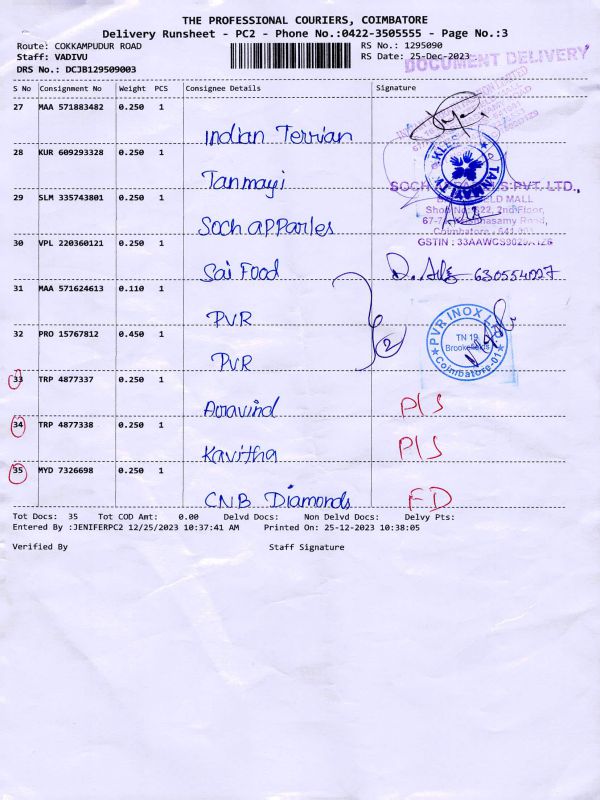 THE PROFESSIONAL COURIERS, COIMBATORE
Delivery Runsheet - PC2 - Phone No.:0422-3505555 - Page No.:3
Route: COKKAMPUDUR ROAD
RS No.: 1295090
Staff: VADIVU
RS Date: 25-Dec-2023
DOCUMENT DELIVERY
DRS No.: DCJB129509003
S No Consignment No Weight PCS Consignee Details Signature
27 MAA 571883482 0.250 1
Indian Terrian
28 KUR 609293328 0.250 1
Tanmayi
TANMAYI
29 SLM 335743801 0.250 1
SOCH PVT. LTD.,
MALL
2nd Floor,
Road,
Coimbatore
GSTIN : 33AAWCS
Soch apparles
30 VPL 220360121 0.250 1
Sai Food
31 MAA 571624613 0.110 1
PVR
PVR INOX LTD
TN 19
Brookefields
Coimbatore-01
32 PRO 15767812 0.450 1
2
PVR
33 TRP 4877337 0.250 1
Aravind P/S
34 TRP 4877338 0.250 1
Kavitha P/S
35 MYD 7326698 0.250 1
CNB Diamonds FD
Tot Docs: 35 Tot COD Amt: 0.00 Delvd Docs: Non Delvd Docs: Delvy Pts:
Entered By :JENIFERPC2 12/25/2023 10:37:41 AM Printed On: 25-12-2023 10:38:05
Verified By Staff Signature